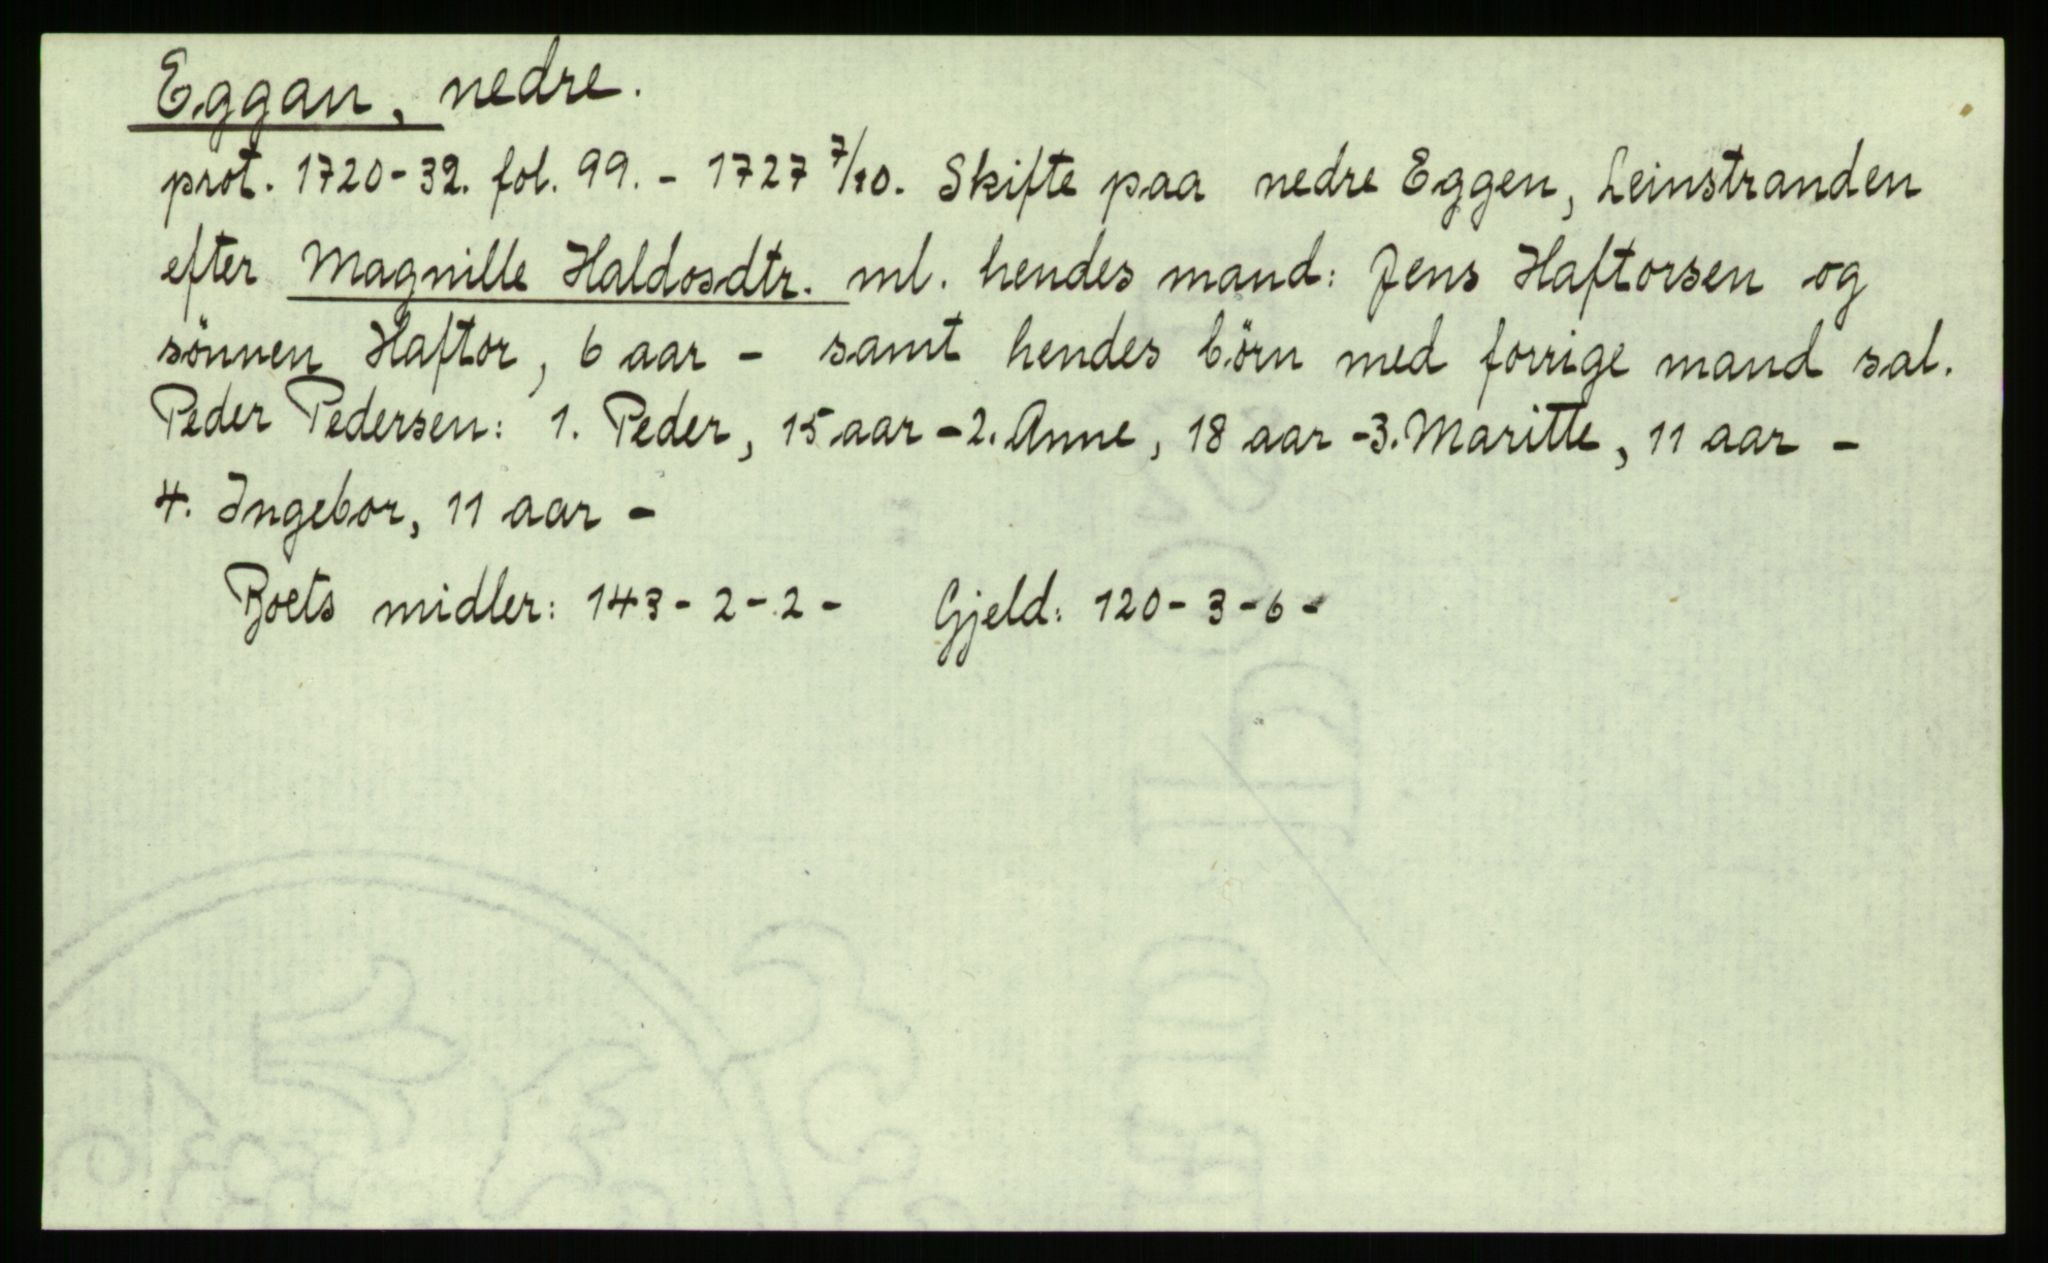 Eggan, nedre.
prot. 1720-32. fol. 99. - 1727 7/10. Skifte paa nedre Eggen, Leinstranden
efter Magnille Haldosdtr. ml. hendes mand: Jens Haftorsen og
sönnen Haftor, 6 aar - samt hendes börn med forrige mand sal.
Peder Pedersen: 1. Peder, 15 aar - 2. Anne, 18 aar - 3. Maritte, 11 aar -
4. Ingebor, 11 aar -
Boets midler: 143 - 2 - 2 - Gjeld: 120 - 3 - 6 -